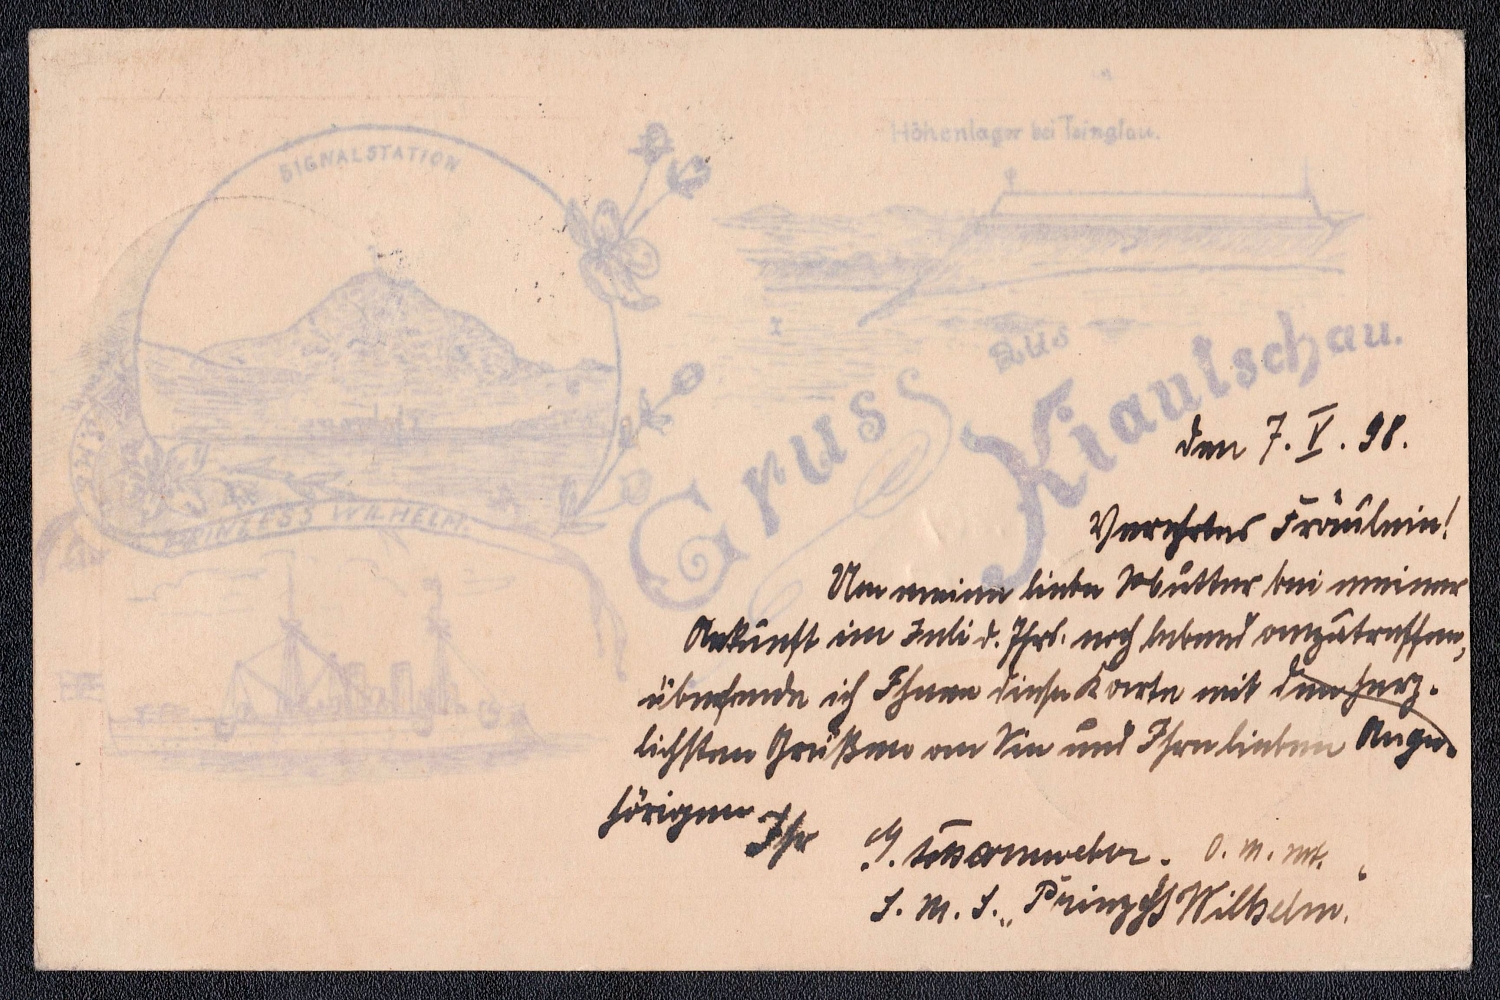 SIGNALSTATION
Höhenlager bei Tsingtau.
Gruss aus Kiautschau.
S.M.S.
PRINZESS WILHELM.
den 7. V. 98.
Verehrtes Fräulein!
Um meine liebe Mutter bei meiner
Ankunft im Juli d. Jhrs. noch lebend anzutreffen,
übersende ich Ihnen diese Karte mit den herz-
lichsten Grüßen an Sie und Ihre lieben Ange-
hörigen Ihr
O. M. Mt.
S. M. S. „Prinzeß Wilhelm“